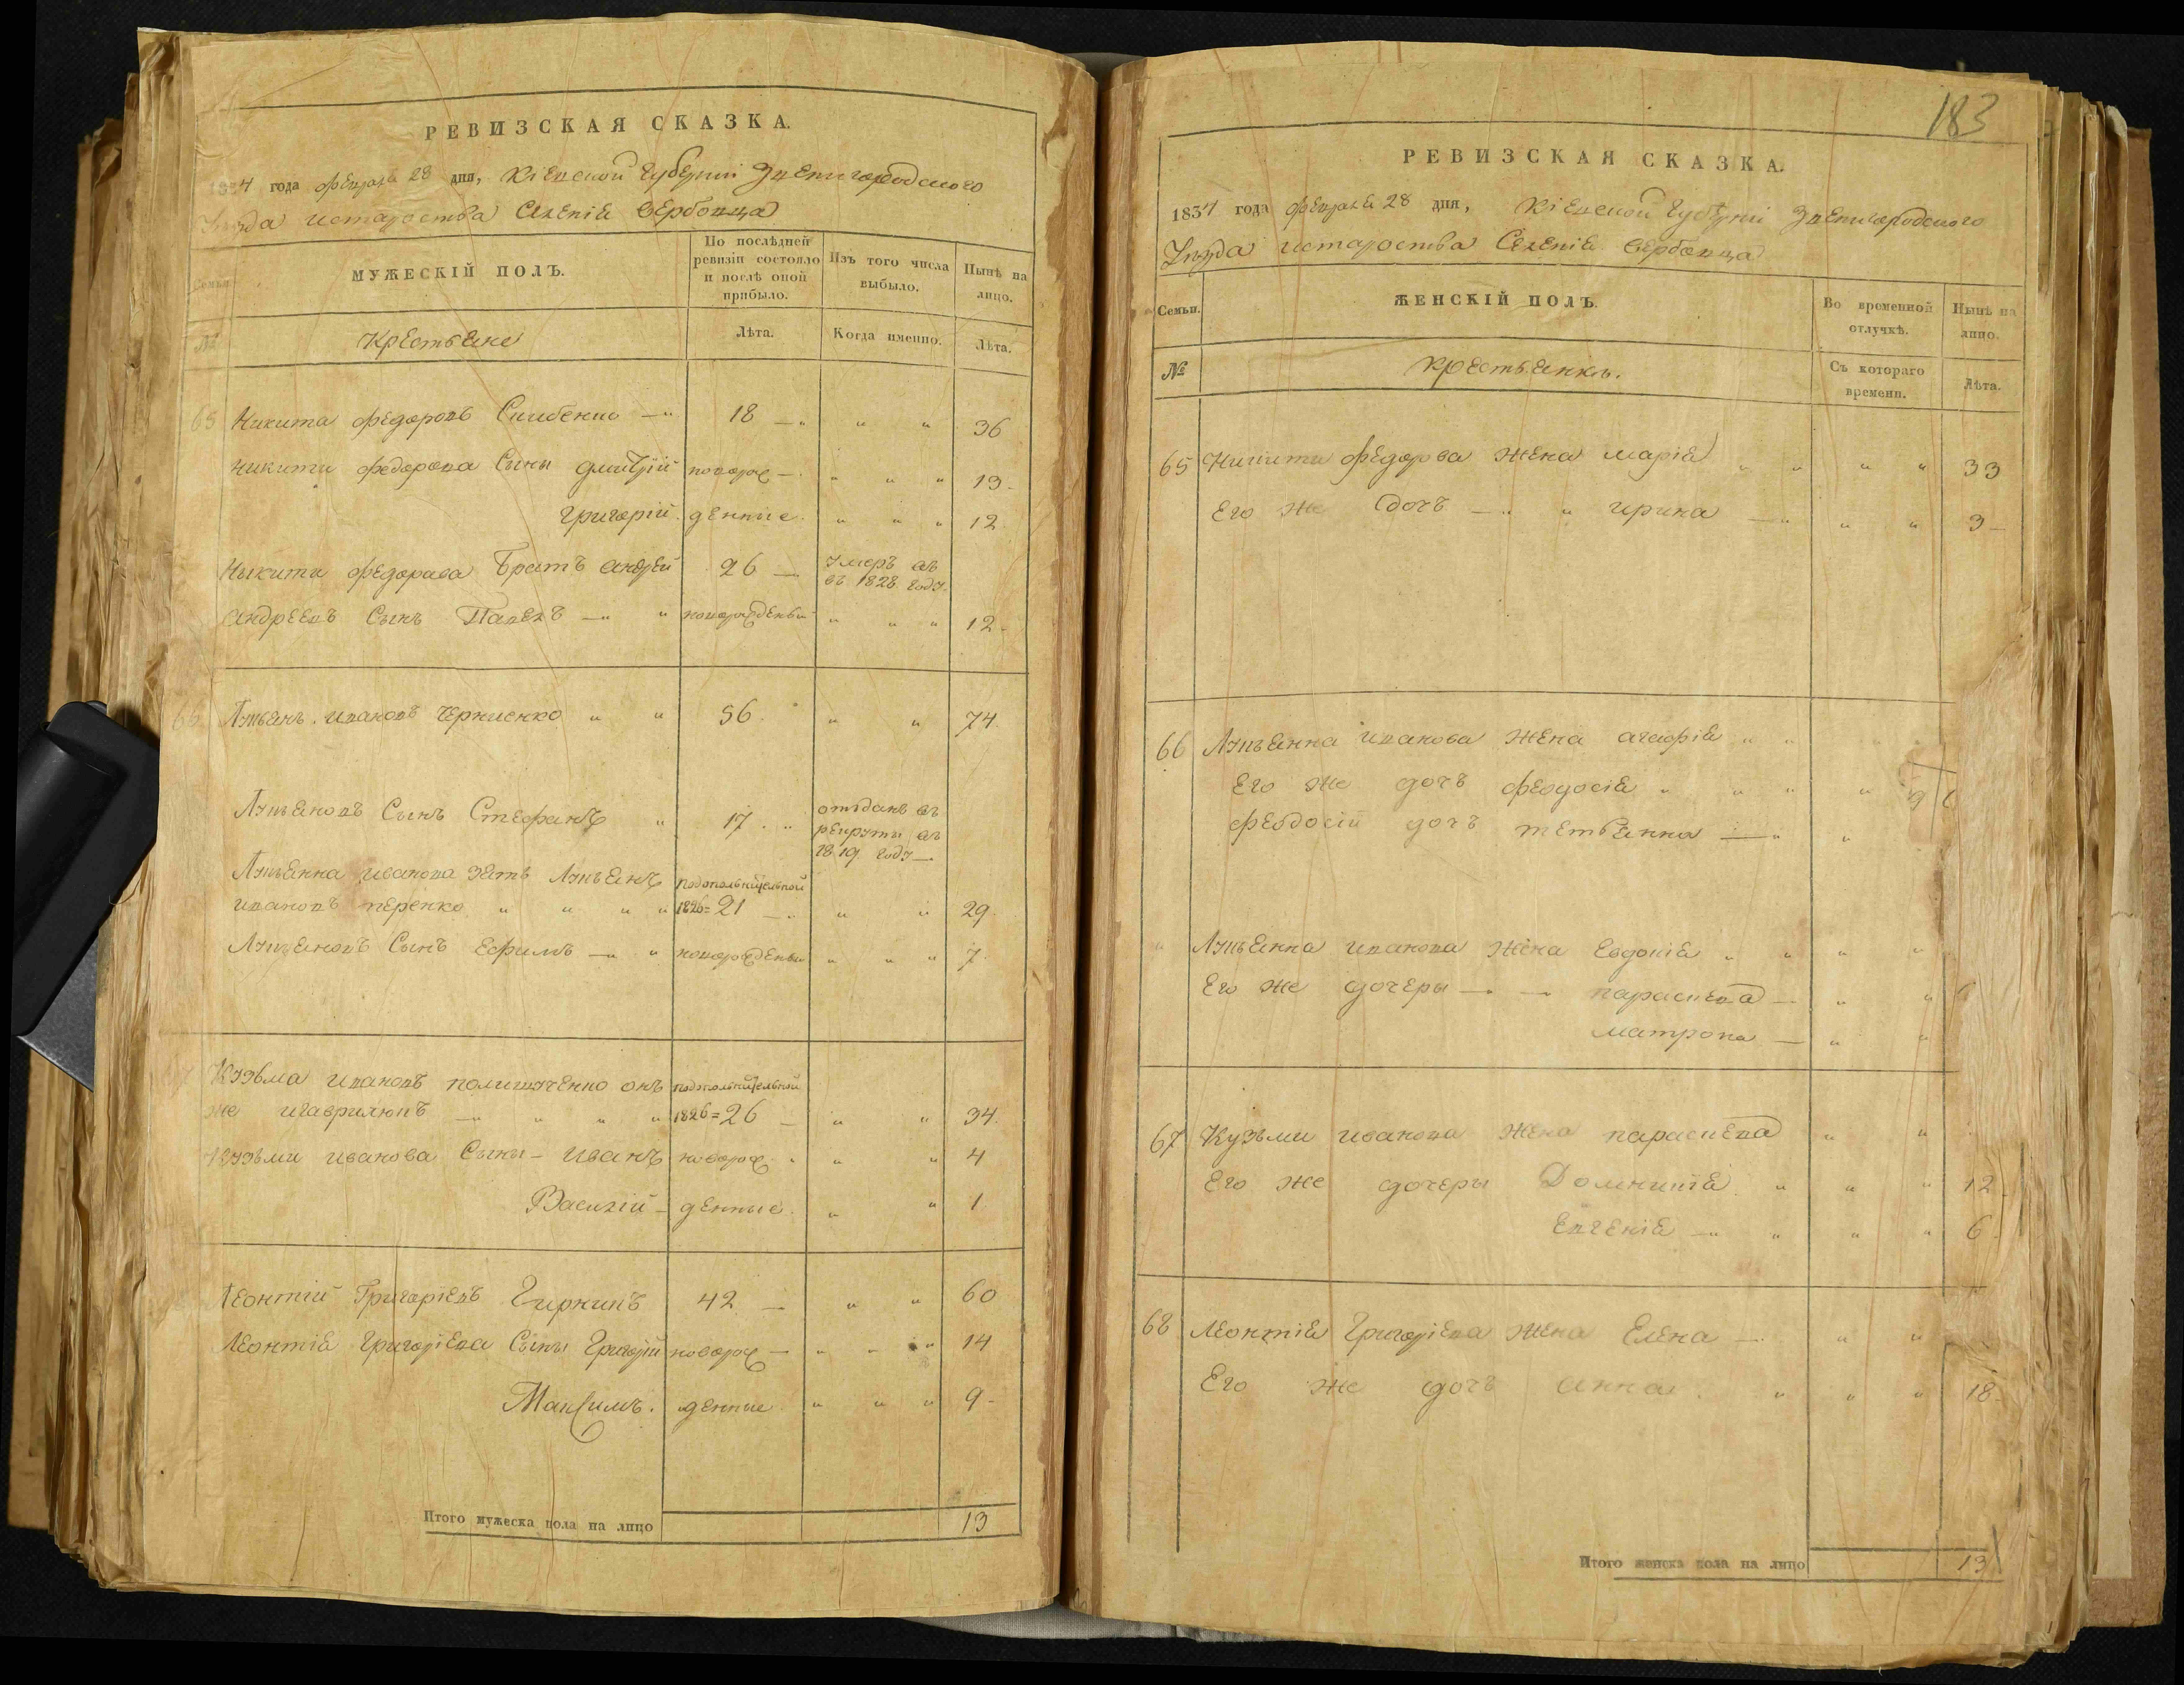 РЕВИЗСКАЯ СКАЗКА.
1834 года февраля 28 дня, Кіевской губерніи Звенигородского
Уѣзда истароства Селенія Вербовца
Семьи.
МУЖЕСКІЙ ПОЛЪ.
По послѣдней ревизіи состояло и послѣ оной прибыло.
Изъ того числа выбыло.
Нынѣ на лицо.
№
Крестьяне
Лѣта.
Когда именно.
Лѣта.
65 Никита Федоровъ 18 — „ „ „ 36
Никити Федорова Сыны Дмитрій новорож — „ „ „ 13 -
Григорій. денные. „ „ „ 12.
Никити Федорава Братъ Андрей 26 — Умеръ въ
въ 1828 году.
Андреевъ Сынъ Павелъ — „ „ новорожденый „ „ „ 12 -
66 Лукьянъ. Ивановъ Черненко „ „ 56. „ „ 74
Лукьяновъ Сынъ Стефанъ „ 17. „ отъданъ въ
рекруты въ
1819 году —
Лукьянна Иванова зять Лукьянъ
Ивановъ „ „ „ „ 1826 = 21 — „ „ „ 29.
Лукьяновъ Сынъ Ефимъ — „ новорожденый „ „ „ 7.
Кузьма Ивановъ онъ
же игаврилюкъ — „ „ „ „ 1826 = 26 — „ „ 34.
Кузьми Иванова Сыны - Иванъ новорож. „ „ „ 4
Василій - денные. „ „ 1
Леонтій Григоріевъ 42 — „ „ 60
Леонтія Григоріева Сыны Григорій новорож — „ „ „ 14
Максимъ. денные „ „ „ 9 -
Итого мужеска пола на лицо 13
183
РЕВИЗСКАЯ СКАЗКА.
1834 года февраля 28 дня, Кіевской губерніи Звенигородского
Уѣзда истароства Селенія Вербовца
Семьи.
ЖЕНСКІЙ ПОЛЪ.
Во временной отлучкѣ.
Нынѣ на лицо.
№
Крестьянкъ.
Съ котораго времени.
Лѣта.
65 Никити Федорова жена Марія „ „ „ „ 33
Его же дочъ — „ „ Ирина — „ „ „ 3 —
66 Лукьянна Иванова жена Агафія „ „
Его же дочъ Феодосія „ „ „ „
Феодосіи дочъ Тетьянна — „ „
„ Лукьянна Иванова жена Евдокія „ „ „ „
Его же дочеры — — Параскева — „ „
Матрона — „ „
67 Кузьми Иванова жена Параскева „ „
Его же дочеры Домникія „ „ „ 12 -
Евгенія — „ „ „ „ 6.
68 Леонтія Григоріева жена Елена — „ „
Его же дочъ Анна. „ „ „ 18 -
Итого женска пола на лицо 13